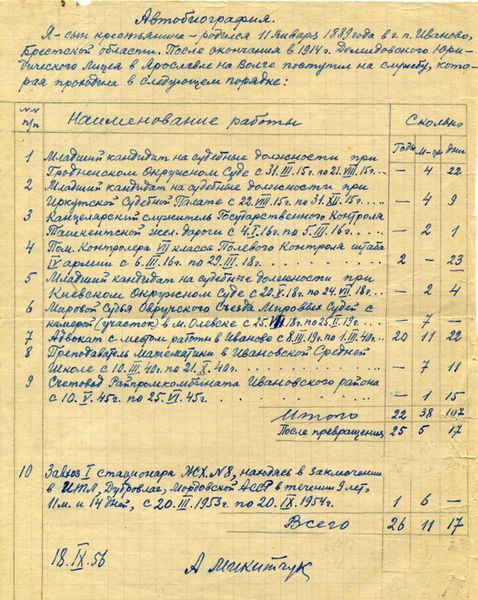 Автобиография.
Я - сын крестьянина - родился 11 Января 1889 года в г.п. Иваново,
Брестской области. После окончания в 1914 г. Демидовского Юри-
дического Лицея в Ярославле на Волге поступил на службу, кото-
рая проходила в следующем порядке:
№№ п/п Наименование работы Сколько
Годы М-цы Дни
1 Младший кандидат на судебные должности при
Гродненском Окружном Суде с 31.III.15г. по 21.VIII.15г... — 4 22
2 Младший кандидат на судебные должности при
Иркутской Судебной Палате с 22.VIII.15г. по 31.XII.15г. — 4 9
3 Канцелярский служитель Государственного Контроля
Ташкентской жел. дороги с 4.I.16г. по 5.III.16г. — 2 1
4 Пом. Контролера VII класса Полевого Контроля штаба
IV армии с 6.III.16г. по 29.III.18г. 2 — 23
5 Младший кандидат на судебные должности при
Киевском Окружном Суде с 20.V.18г. по 24.VII.18г. — 2 4
6 Мировой Судья Овручского Съезда Мировых Судей с
камерой (участок) в м. Олевске с 25.VII.18г. по 25.II.19г. — 7 —
7 Адвокат с местом работы в Иванове с 8.III.19г. по 1.III.40г. 20 11 22
8 Преподаватель математики в Ивановской Средней
Школе с 10.III.40г. по 21.X.40г. — 7 11
9 Счетовод Райпромкомбината Ивановского района
с 10.V.45г. по 25.VI.45г. — 1 15
Итого 22 38 107
После превращения 25 5 17
10 Завхоз I стационара ЖХ.N8, находясь в заключении
в ИТЛ, Дубровлаг, Мордовской АССР в течении 9 лет,
11 м. и 14 дней, с 20.III.1953г. по 20.IX.1954г. 1 6 —
Всего 26 11 17
18.IX.56 А Микитчук